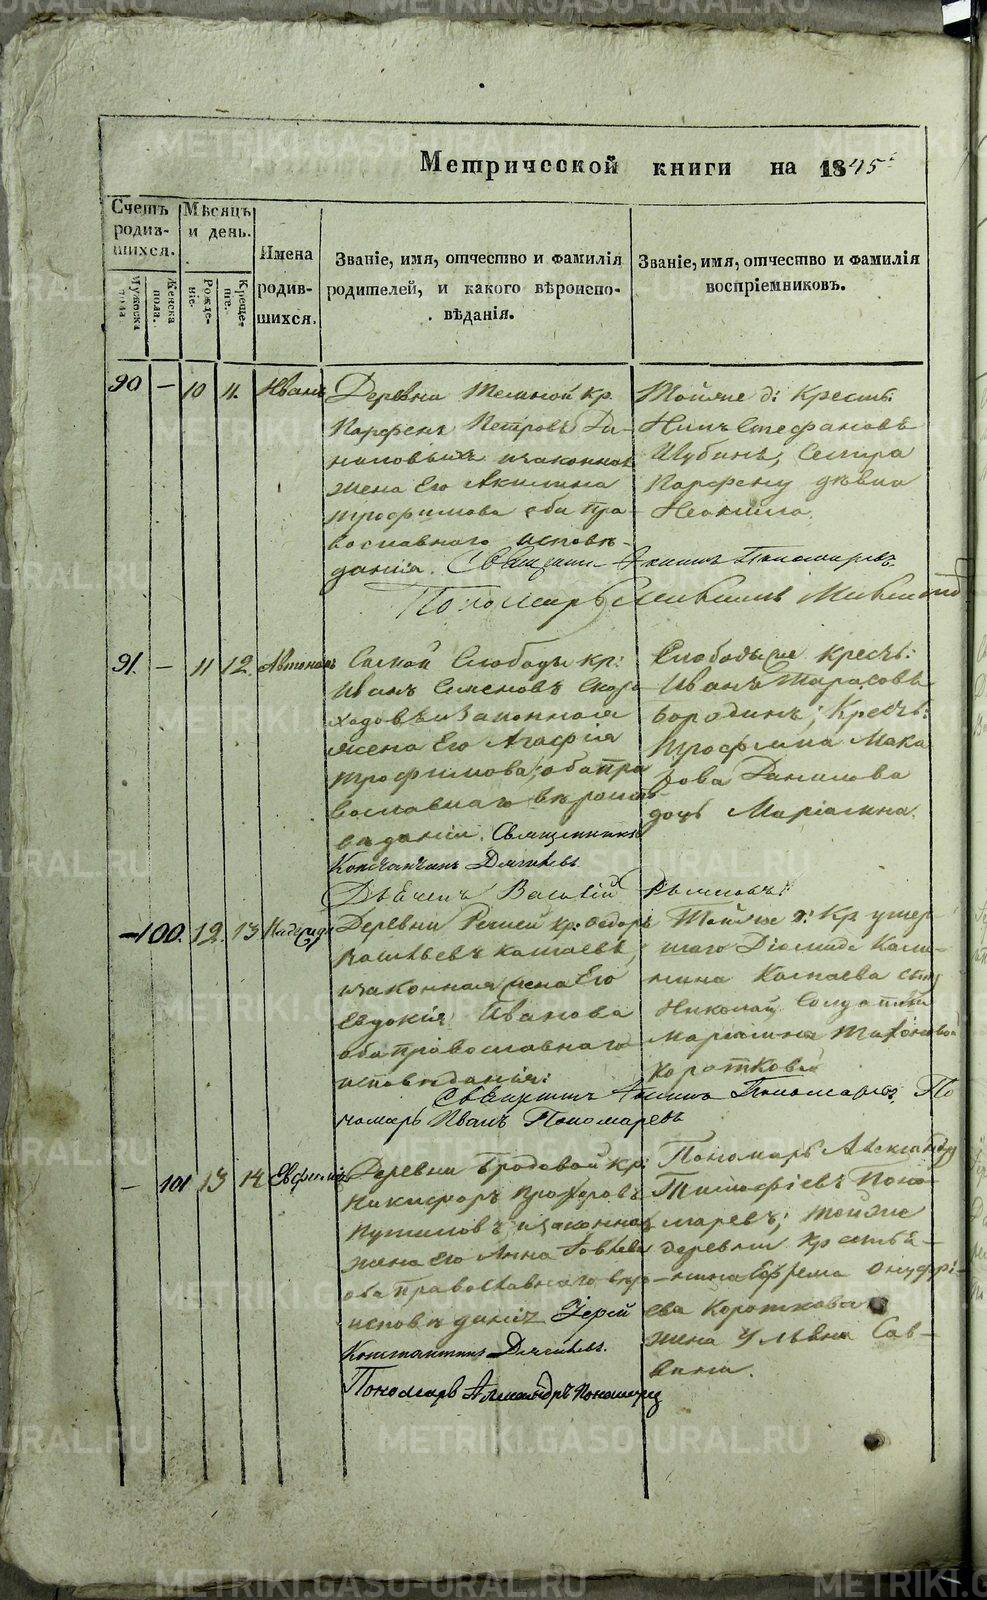 Метрической книги на 1845
Счетъ родив-шихся.
Мужеска пола.
Женска пола.
Мѣсяцъ и день.
Рожде-ніе.
Креще-ніе.
Имена родив-шихся.
Званіе, имя, отчество и фамилія
родителей, и какого вѣроиспо-
вѣданія.
Званіе, имя, отчество и фамилія
воспріемниковъ.
90 — 10 11. Иванъ
Деревни кр.
Парфенъ Петровъ Да-
ниловыхъ изаконная
жена Его Акилина
трофимова оба пра-
вославнаго исповѣ-
данія. Священникъ Пономаревъ
Пономарь
Тойже д: Крестъ:
Стефановъ
Шубинъ, Сестра
Парфену дѣвка
91. — 11 12. Автономъ
Самой Слободы кр:
Иванъ Семеновъ Скоро
ходовъ изаконная
жена Его Агафія
трофимова, оба пра
вославнаго вѣроиспо-
веданія. Священникъ
Константинъ
Василій
Слободы же крестъ:
Иванъ Тарасовъ
Бородинъ; Крестъ:
трофима Мака
рова Данилова
дочь Маріамна.
— 100. 12. 13 Надежда
Деревни кр: Федоръ
Васильевъ Катаевъ,
изаконная жена Его
Евдокія Иванова
оба православнаго
исповѣданія:
Священникъ Пономаревъ. По
номарь Иванъ Пономаревъ
Тойже д: Кр умер-
шаго Діомида Кали-
нина Катаева сынъ
Николай Солдатка
Маріамна
Короткова
— 101 13 14 Евфимія
Деревни Бродовой кр:
Никифоръ Прохоровъ
Путиловъ, изаконная
жена Его Анна
оба православнаго вѣро-
исповѣданія Іерей
Константинъ
Пономарь Александръ Пономаревъ
Пономарь Александръ
Тимофіевъ Поно-
маревъ; тойже
деревни крестья-
нина Ефрема Онуфрі-
ева Короткова
жена Ульяна Сав-
вина.
METRIKI.GASO-URAL.RU